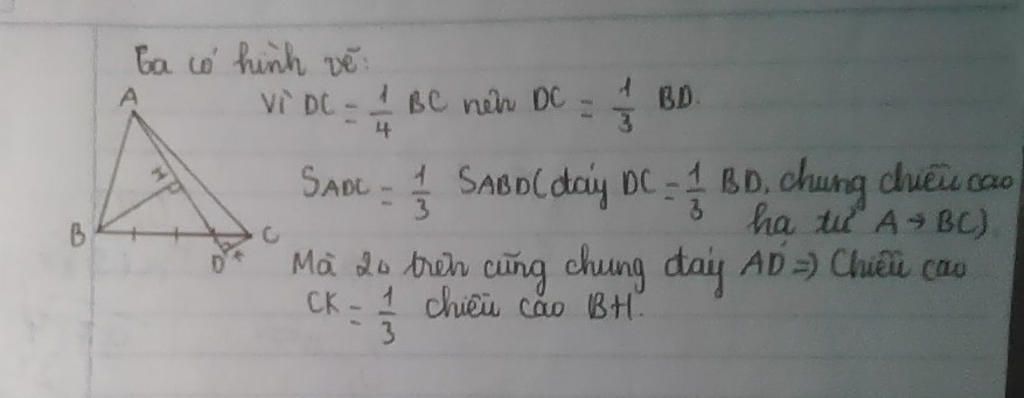 Ta có hình vẽ:
Vì DC = 1/4 BC nên DC = 1/3 BD.
SADC = 1/3 SABD (đáy DC = 1/3 BD, chung chiều cao
hạ từ A → BC)
Mà 2 trên cũng chung đáy AD => Chiều cao
CK = 1/3 chiều cao BH.
A
H
B
C
D
K